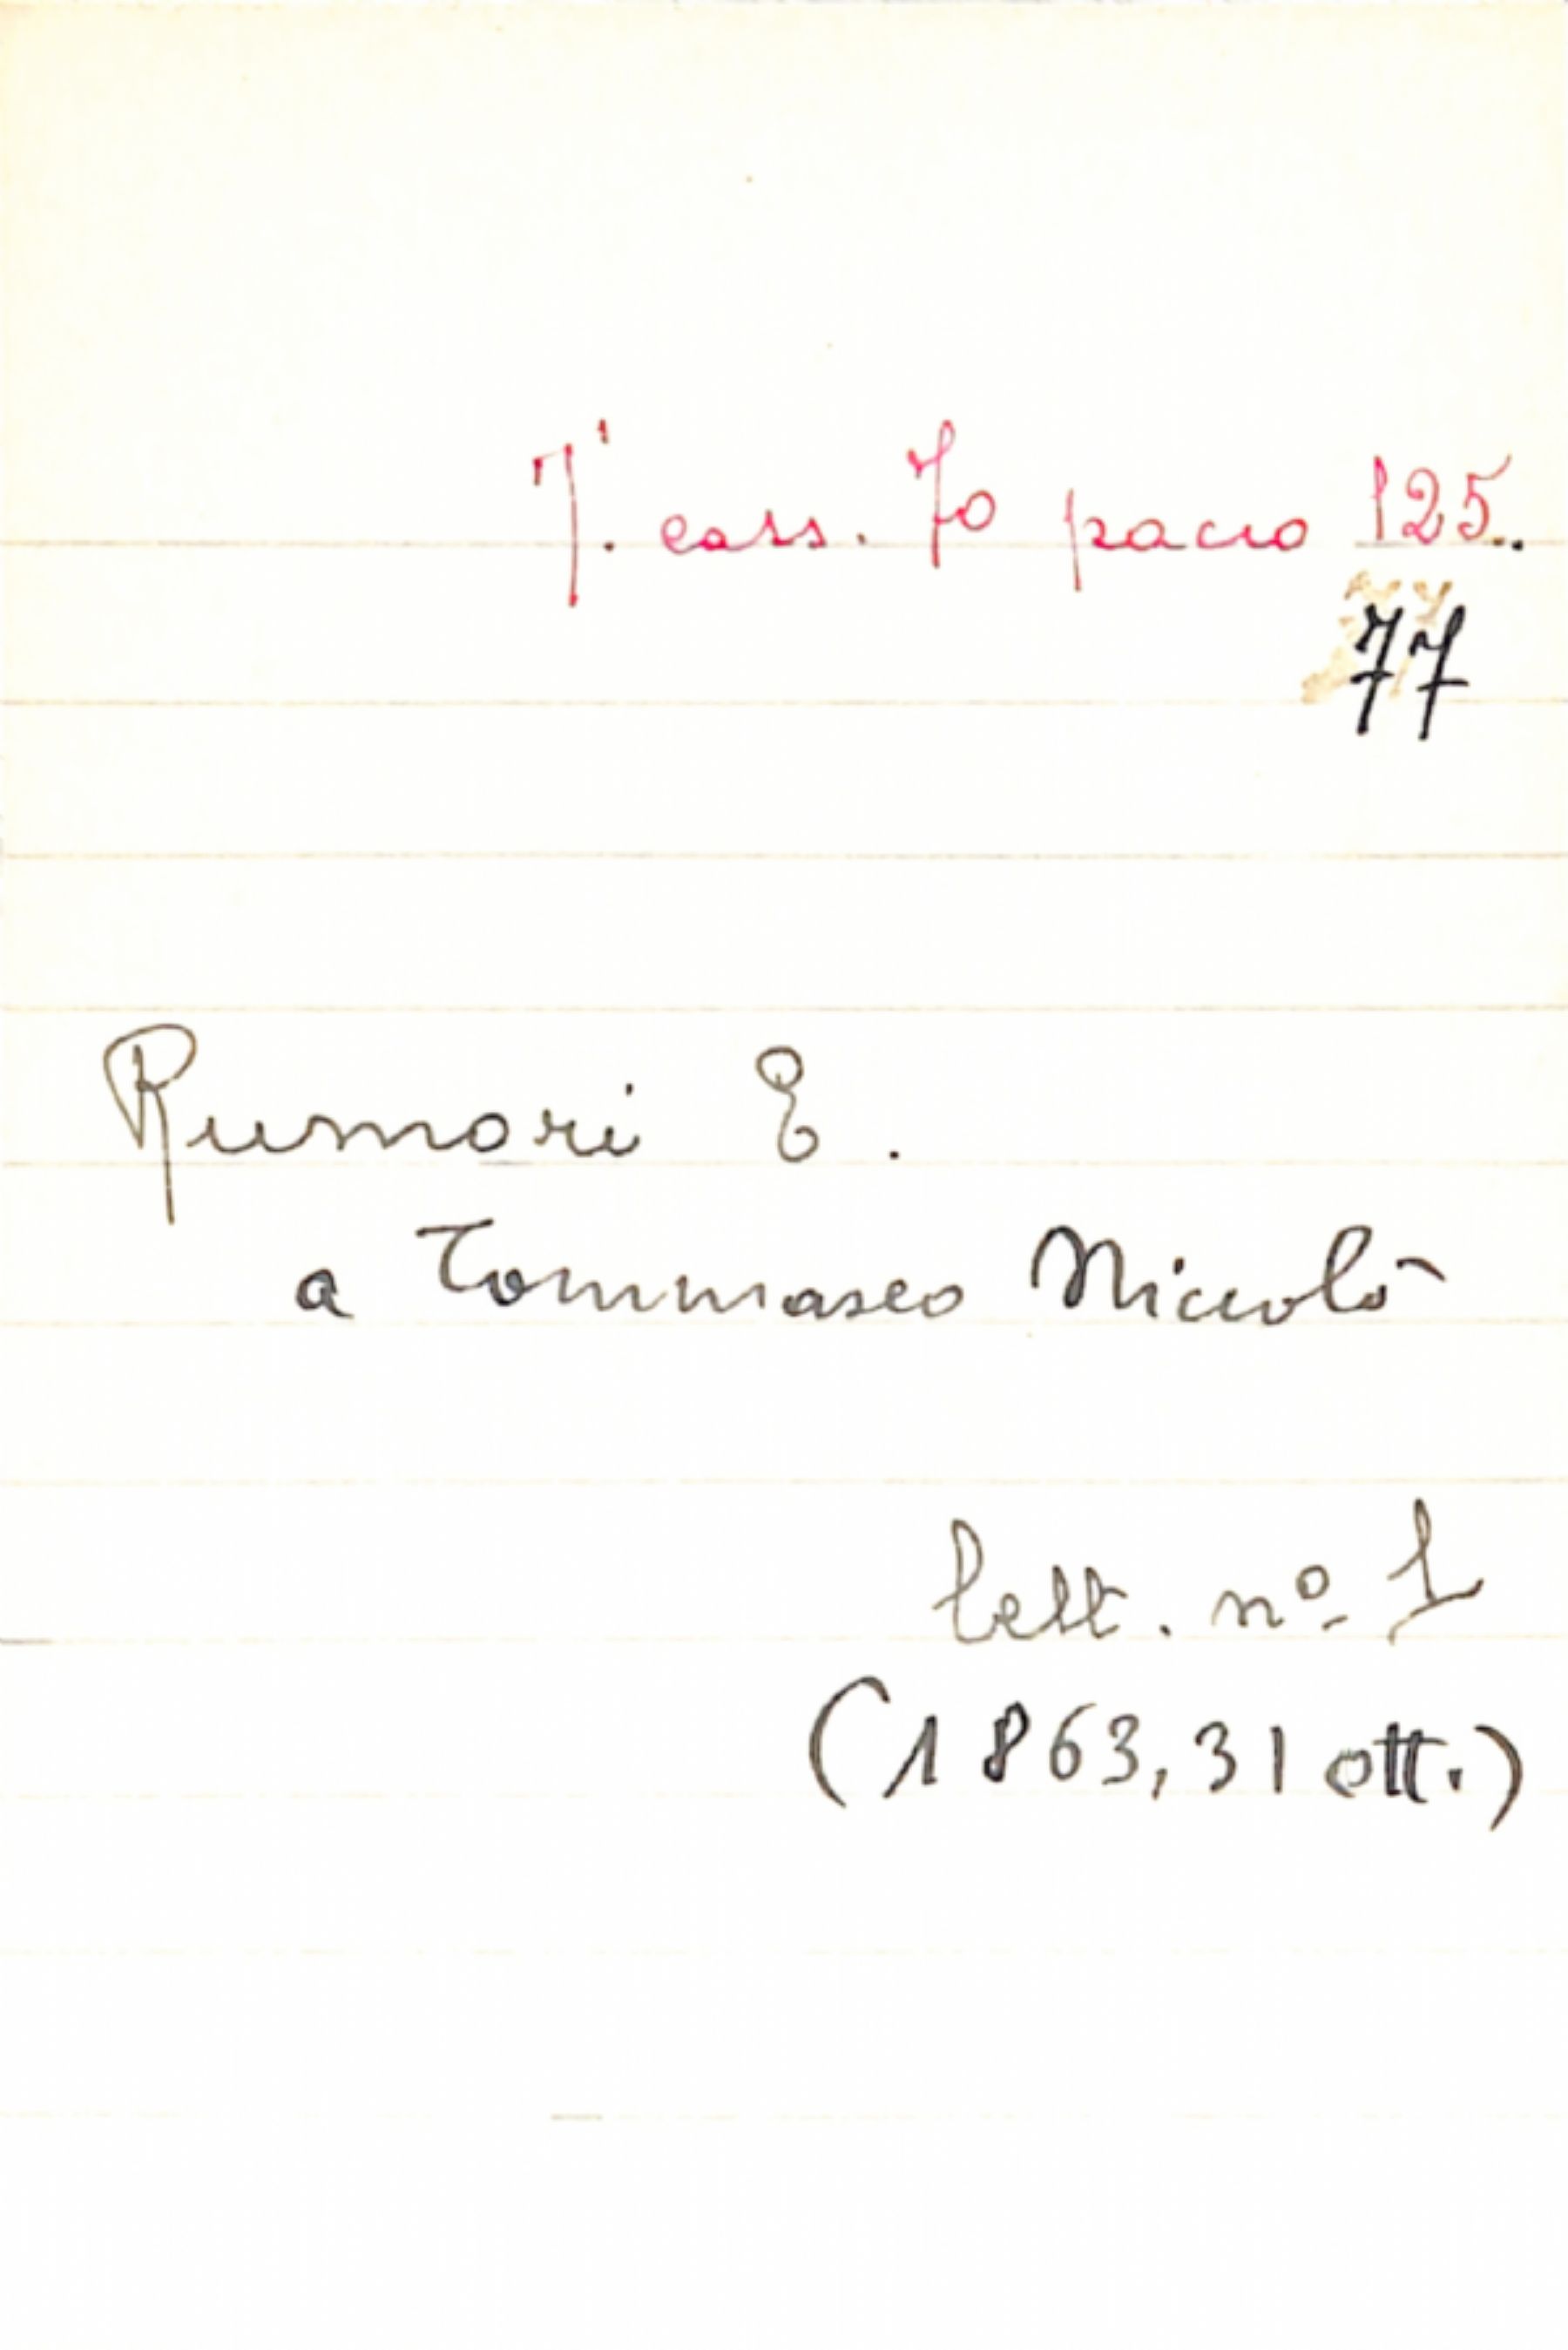 T. cass. 70 pacco 125.
77
Rumori E.
a Tommaseo Niccolò
lett. nº 1
(1863, 31 ott.)